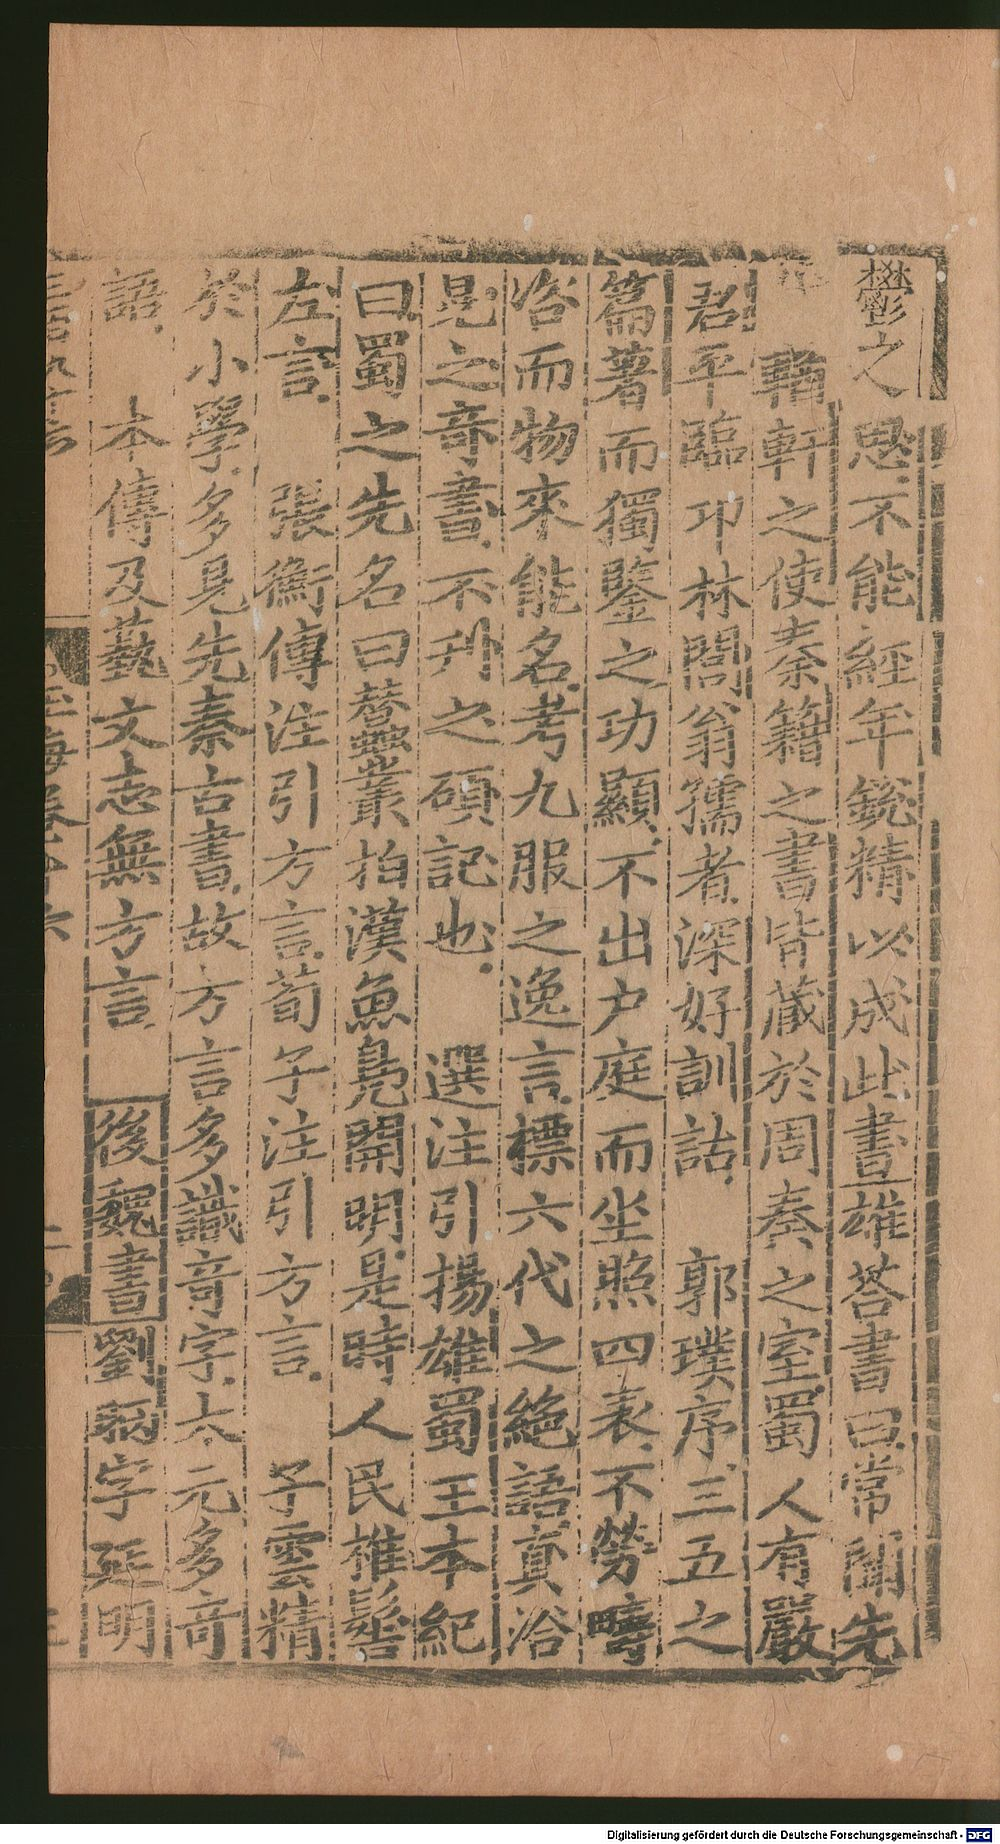 鬱之思不能經年銳精以成此書雄荅書曰常聞先
代輶軒之使奏籍之書皆藏於周秦之室蜀人有嚴
君平臨卭林閭翁孺者深好訓詁 郭璞序三五之
篇著而獨鑒之功顯不出户庭而坐照四表不勞疇
咨而物來能名考九服之逸言標六代之絶語真洽
見之竒書不刋之碩記也 選注引揚雄蜀王本紀
曰蜀之先名曰蠶叢拍漢魚鳧開明是時人民椎髻
左言 張衡傳注引方言荀子注引方言 子雲精
於小學多見先秦古書故方言多識竒字太元多竒
語 本傳及藝文志無方言 後魏書劉昞字延明
玉海卷
Digitalisierung gefördert durch die Deutsche Forschungsgemeinschaft - DFG